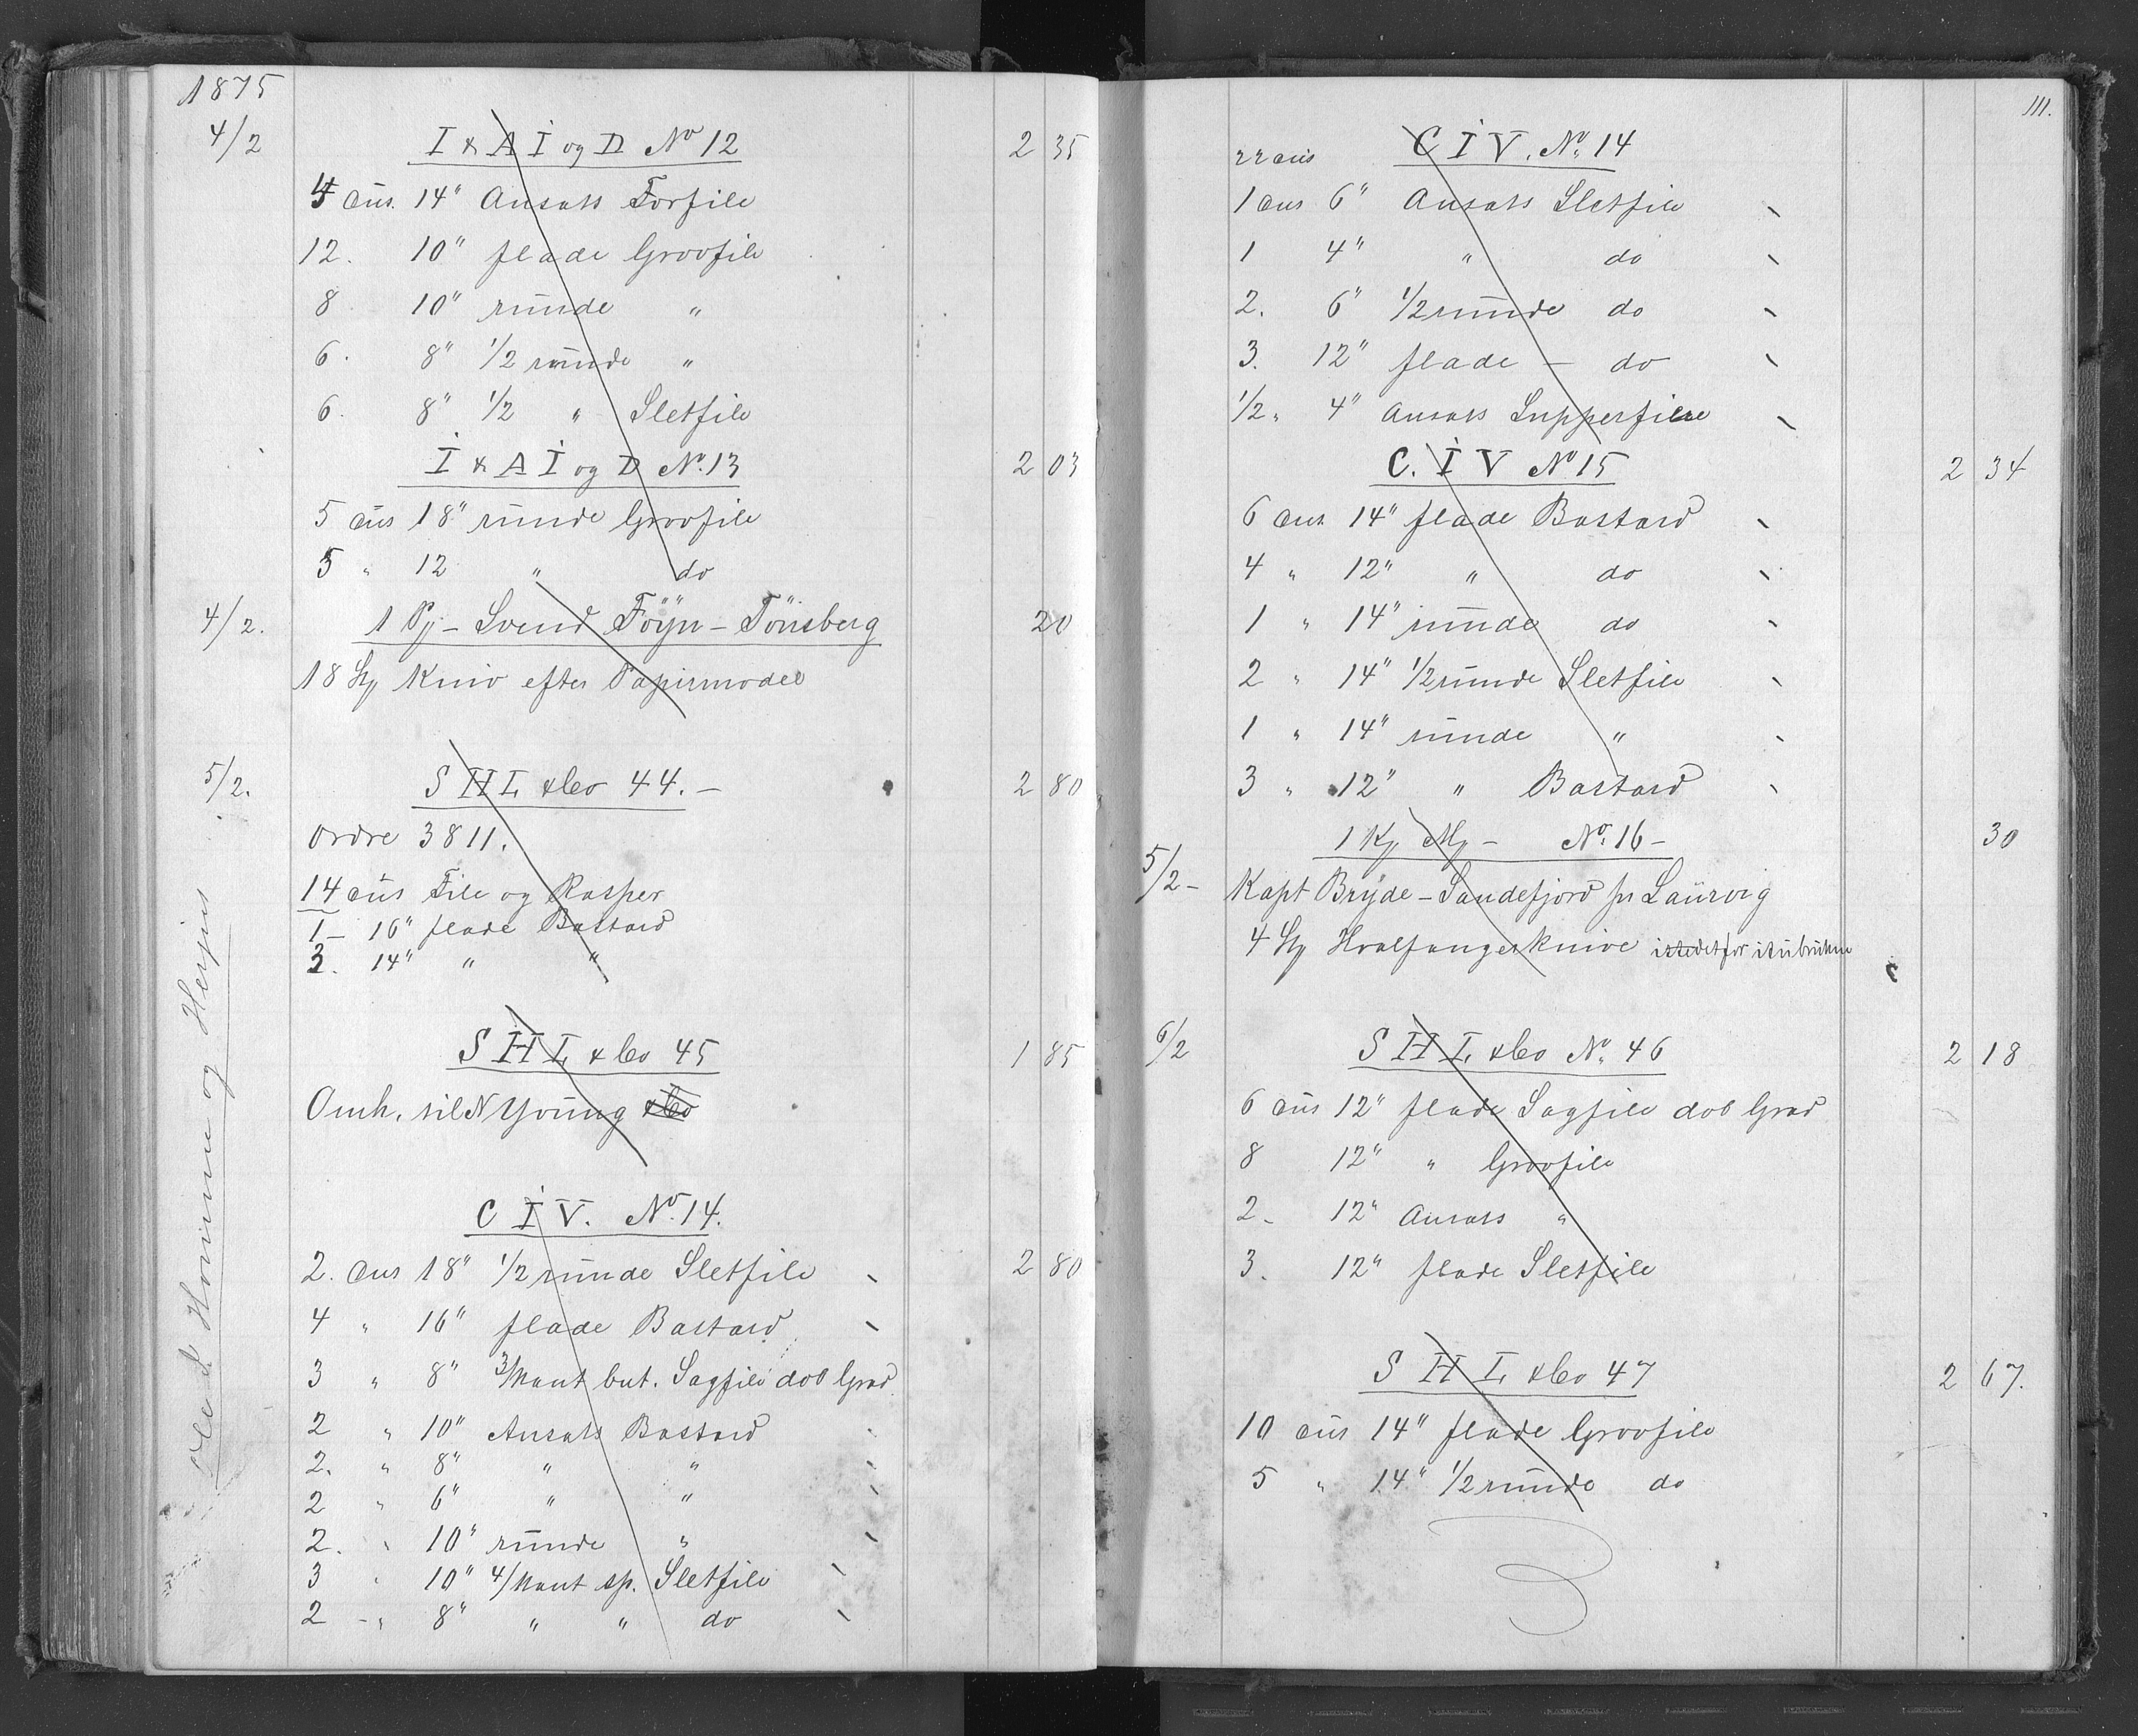 1875
4/2 I & A I og D No 12 2 35
4 dus. 14" Ansats Forfile
12. 10" flade Groofile
8 10" runde "
6. 8" 1/2 runde "
6. 8" 1/2 " Sletfile
I & A I og D No. 13 2 03
5 dus 18" runde Groofile
5 " 12 " do
4/2. 1 Pj - Svend Föyn - Tönsberg 20
18 Stj Kniv efter Papirmodel
5/2. S H L & Co 44. - 2 80
Ordre 3811.
14 dus File og Rasper
1 - 16" flade Bastard
3. 14" " "
S H L & Co 45 1 85
Omh. til N Young & Co
C I V. No. 14.
2. dus 18" 1/2 runde Sletfile 2 80
4 " 16" flade Bastard
3 " 8" 3/kant but. Sagfile dob Grad.
2 " 10" Ansats Bastard
2. " 8" " "
2 " 6" " "
2. " 10" runde "
3 " 10" 4/kant sp. Sletfile
2 - " 8" " " do
Ole L Hommen og
111.
22 dus C I V. No. 14
1 dus 6" Ansats Sletfile
1 4" " do
2. 6" 1/2 runde do
3. 12" flade - do
1/2 " 4" Ansats Supperfile
C. I V No 15 2 34
6 dus 14" flade Bastard
4 " 12" " do
1 " 14" runde do
2 " 14" 1/2 runde Sletfile
1 " 14" runde "
3 " 12" " Bastard
1 Kj Mj - No. 16 - 30
5/2 - Kapt Bryde - Sandefjord pr Laurvig
4 Stj Hvalfangerknive istedetfor itubrukne
6/2 S H L & Co No. 46 2 18
6 dus 12" flade Sagfile dob Grad
8 12" " Groofile
2 - 12" Ansats "
3. 12" flade Sletfile
S H L & Co 47 2 67.
10 dus 14" flade Groofile
5 " 14" 1/2 runde do